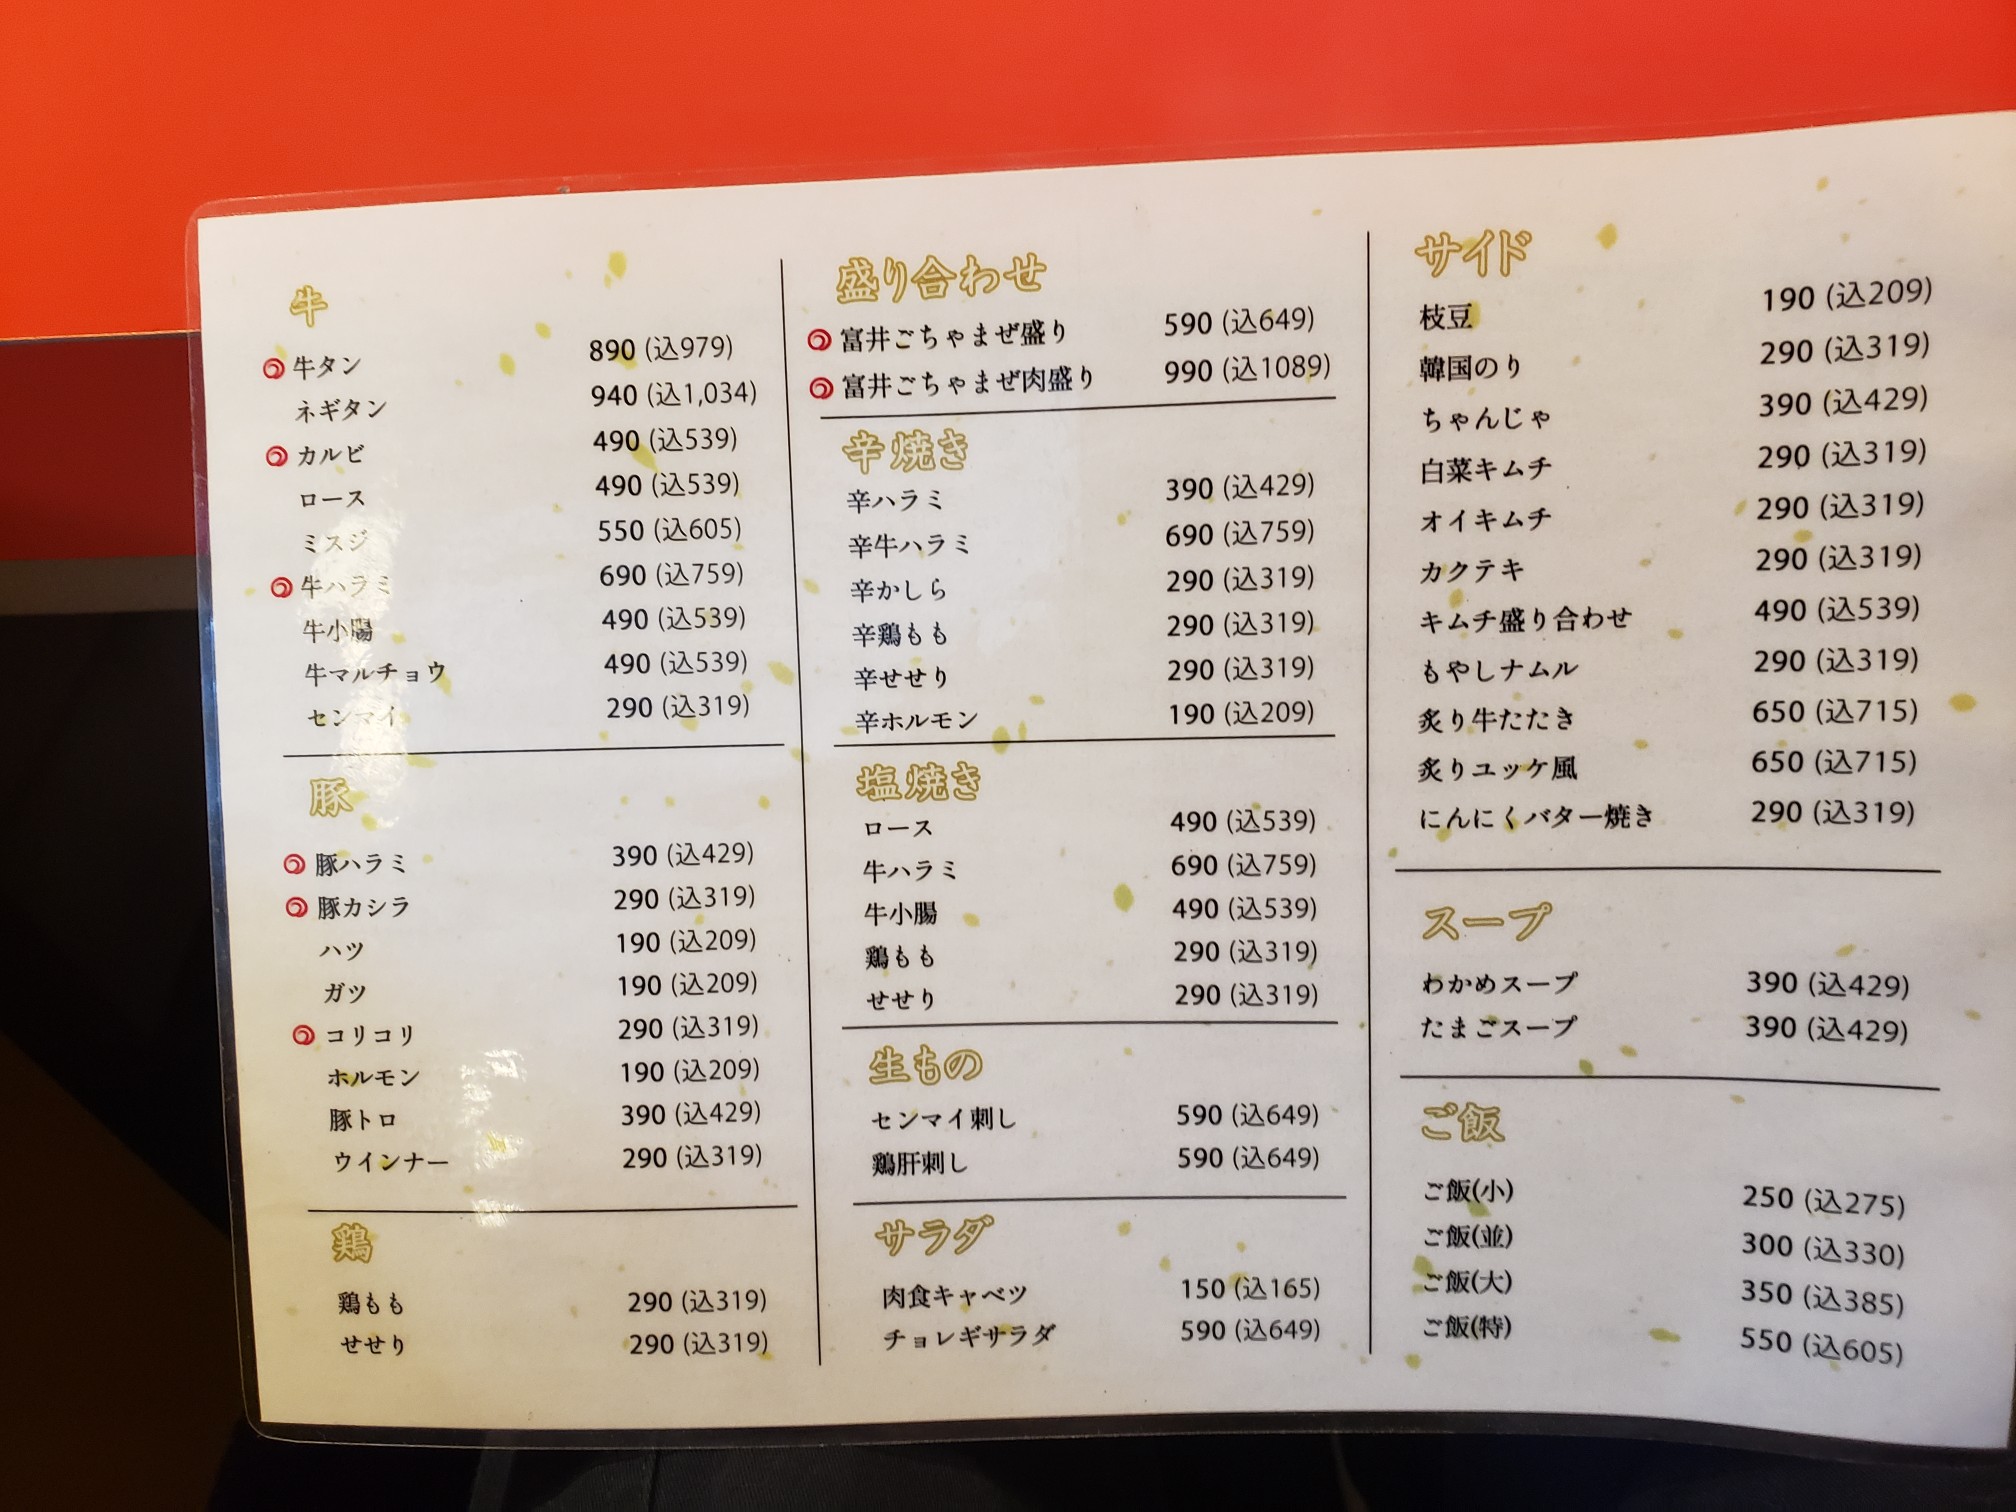 牛
牛タン 890 (込979)
ネギタン 940 (込1,034)
カルビ 490 (込539)
ロース 490 (込539)
ミスジ 550 (込605)
牛ハラミ 690 (込759)
牛小腸 490 (込539)
牛マルチョウ 490 (込539)
センマイ 290 (込319)
豚
豚ハラミ 390 (込429)
豚カシラ 290 (込319)
ハツ 190 (込209)
ガツ 190 (込209)
コリコリ 290 (込319)
ホルモン 190 (込209)
豚トロ 390 (込429)
ウインナー 290 (込319)
鶏
鶏もも 290 (込319)
せせり 290 (込319)
盛り合わせ
富井ごちゃまぜ盛り 590 (込649)
富井ごちゃまぜ肉盛り 990 (込1089)
辛焼き
辛ハラミ 390 (込429)
辛牛ハラミ 690 (込759)
辛かしら 290 (込319)
辛鶏もも 290 (込319)
辛せせり 290 (込319)
辛ホルモン 190 (込209)
塩焼き
ロース 490 (込539)
牛ハラミ 690 (込759)
牛小腸 490 (込539)
鶏もも 290 (込319)
せせり 290 (込319)
生もの
センマイ刺し 590 (込649)
鶏肝刺し 590 (込649)
サラダ
肉食キャベツ 150 (込165)
チョレギサラダ 590 (込649)
サイド
枝豆 190 (込209)
韓国のり 290 (込319)
ちゃんじゃ 390 (込429)
白菜キムチ 290 (込319)
オイキムチ 290 (込319)
カクテキ 290 (込319)
キムチ盛り合わせ 490 (込539)
もやしナムル 290 (込319)
炙り牛たたき 650 (込715)
炙りユッケ風 650 (込715)
にんにくバター焼き 290 (込319)
スープ
わかめスープ 390 (込429)
たまごスープ 390 (込429)
ご飯
ご飯(小) 250 (込275)
ご飯(並) 300 (込330)
ご飯(大) 350 (込385)
ご飯(特) 550 (込605)